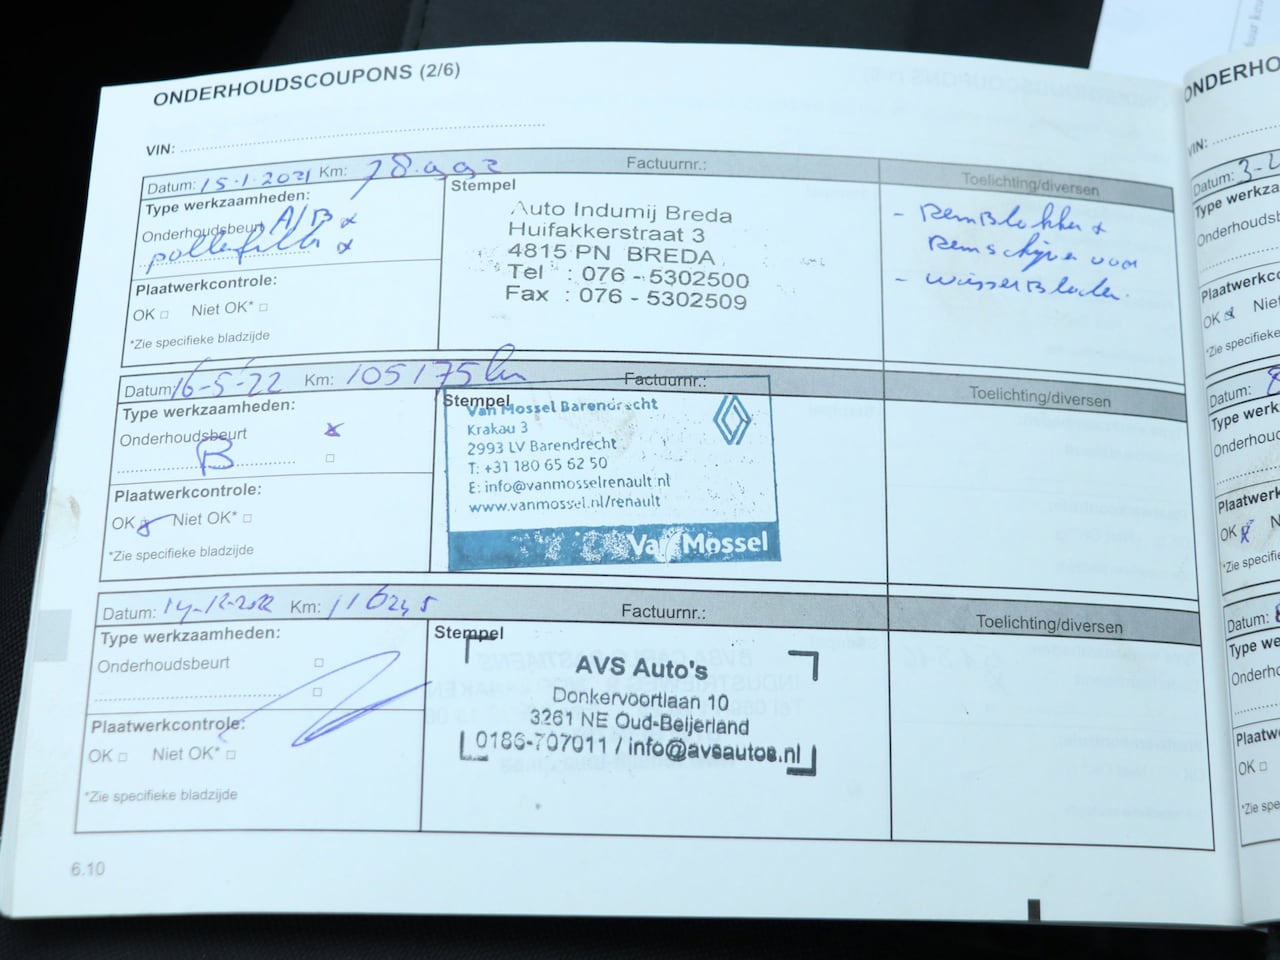 ONDERHOUDSCOUPONS (2/6)
VIN:
Datum: 15-1-2021 Km: 78.992 Factuurnr.: Toelichting/diversen
Type werkzaamheden:
Onderhoudsbeurt A/B x
pollenfilter x
Plaatwerkcontrole:
OK □ Niet OK* □
*Zie specifieke bladzijde
Stempel
Auto Indumij Breda
Huifakkerstraat 3
4815 PN BREDA
Tel : 076 - 5302500
Fax : 076 - 5302509
- Remblokken +
Remschijven voor
- wisserbladen.
Datum: 16-5-22 Km: 105175 km Factuurnr.: Toelichting/diversen
Type werkzaamheden:
Onderhoudsbeurt x
B □
Plaatwerkcontrole:
OK x Niet OK* □
*Zie specifieke bladzijde
Stempel
Van Mossel Barendrecht
Krakau 3
2993 LV Barendrecht
T: +31 180 65 62 50
E: info@vanmosselrenault.nl
www.vanmossel.nl/renault
Van Mossel
Datum: 14-12-2022 Km: 116245 Factuurnr.: Toelichting/diversen
Type werkzaamheden:
Onderhoudsbeurt □
□
Plaatwerkcontrole:
OK □ Niet OK* □
*Zie specifieke bladzijde
Stempel
AVS Auto's
Donkervoortlaan 10
3261 NE Oud-Beijerland
0186-707011 / info@avsautos.nl
6.10
ONDERHO
VIN:
Datum: 3-
Type werkza
Onderhouds
Plaatwerkco
OK x Niet
*Zie specifieke
Datum:
Type werkza
Onderhoud
Plaatwerk
OK x N
*Zie specifi
Datum:
Type we
Onderho
Plaatw
OK □
*Zie spe